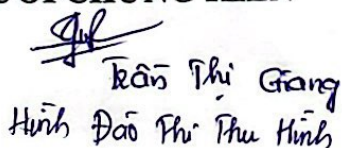 Trần Thị Giang
Hình Đào Thị Thu Hình